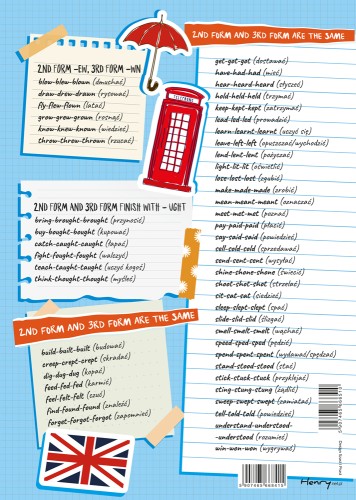 2ND FORM -EW, 3RD FORM -WN
blow-blew-blown (dmuchać)
draw-drew-drawn (rysować)
fly-flew-flown (latać)
grow-grew-grown (rosnąć)
know-knew-known (wiedzieć)
throw-threw-thrown (rzucać)
TELEPHONE
2ND FORM AND 3RD FORM FINISH WITH - UGHT
bring-brought-brought (przynosić)
buy-bought-bought (kupować)
catch-caught-caught (łapać)
fight-fought-fought (walczyć)
teach-taught-taught (uczyć kogoś)
think-thought-thought (myśleć)
2ND FORM AND 3RD FORM ARE THE SAME
build-built-built (budować)
creep-crept-crept (skradać)
dig-dug-dug (kopać)
feed-fed-fed (karmić)
feel-felt-felt (czuć)
find-found-found (znaleźć)
forget-forgot-forgot (zapomnieć)
2ND FORM AND 3RD FORM ARE THE SAME
get-got-got (dostawać)
have-had-had (mieć)
hear-heard-heard (słyszeć)
hold-held-held (trzymać)
keep-kept-kept (zatrzymać)
lead-led-led (prowadzić)
learn-learnt-learnt (uczyć się)
leave-left-left (opuszczać/wychodzić)
lend-lent-lent (pożyczać)
light-lit-lit (oświetlić)
lose-lost-lost (zgubić)
make-made-made (zrobić)
mean-meant-meant (oznaczać)
meet-met-met (poznać)
pay-paid-paid (płacić)
say-said-said (powiedzieć)
sell-sold-sold (sprzedawać)
send-sent-sent (wysyłać)
shine-shone-shone (świecić)
shoot-shot-shot (strzelać)
sit-sat-sat (siedzieć)
sleep-slept-slept (spać)
slide-slid-slid (ślizgać)
smell-smelt-smelt (wąchać)
speed-sped-sped (pędzić)
spend-spent-spent (wydawać/spędzać)
stand-stood-stood (stać)
stick-stuck-stuck (przyklejać)
sting-stung-stung (żądlić)
sweep-swept-swept (zamiatać)
tell-told-told (powiedzieć)
understand-understood-
-understood (rozumieć)
win-won-won (wygrywać)
Henry